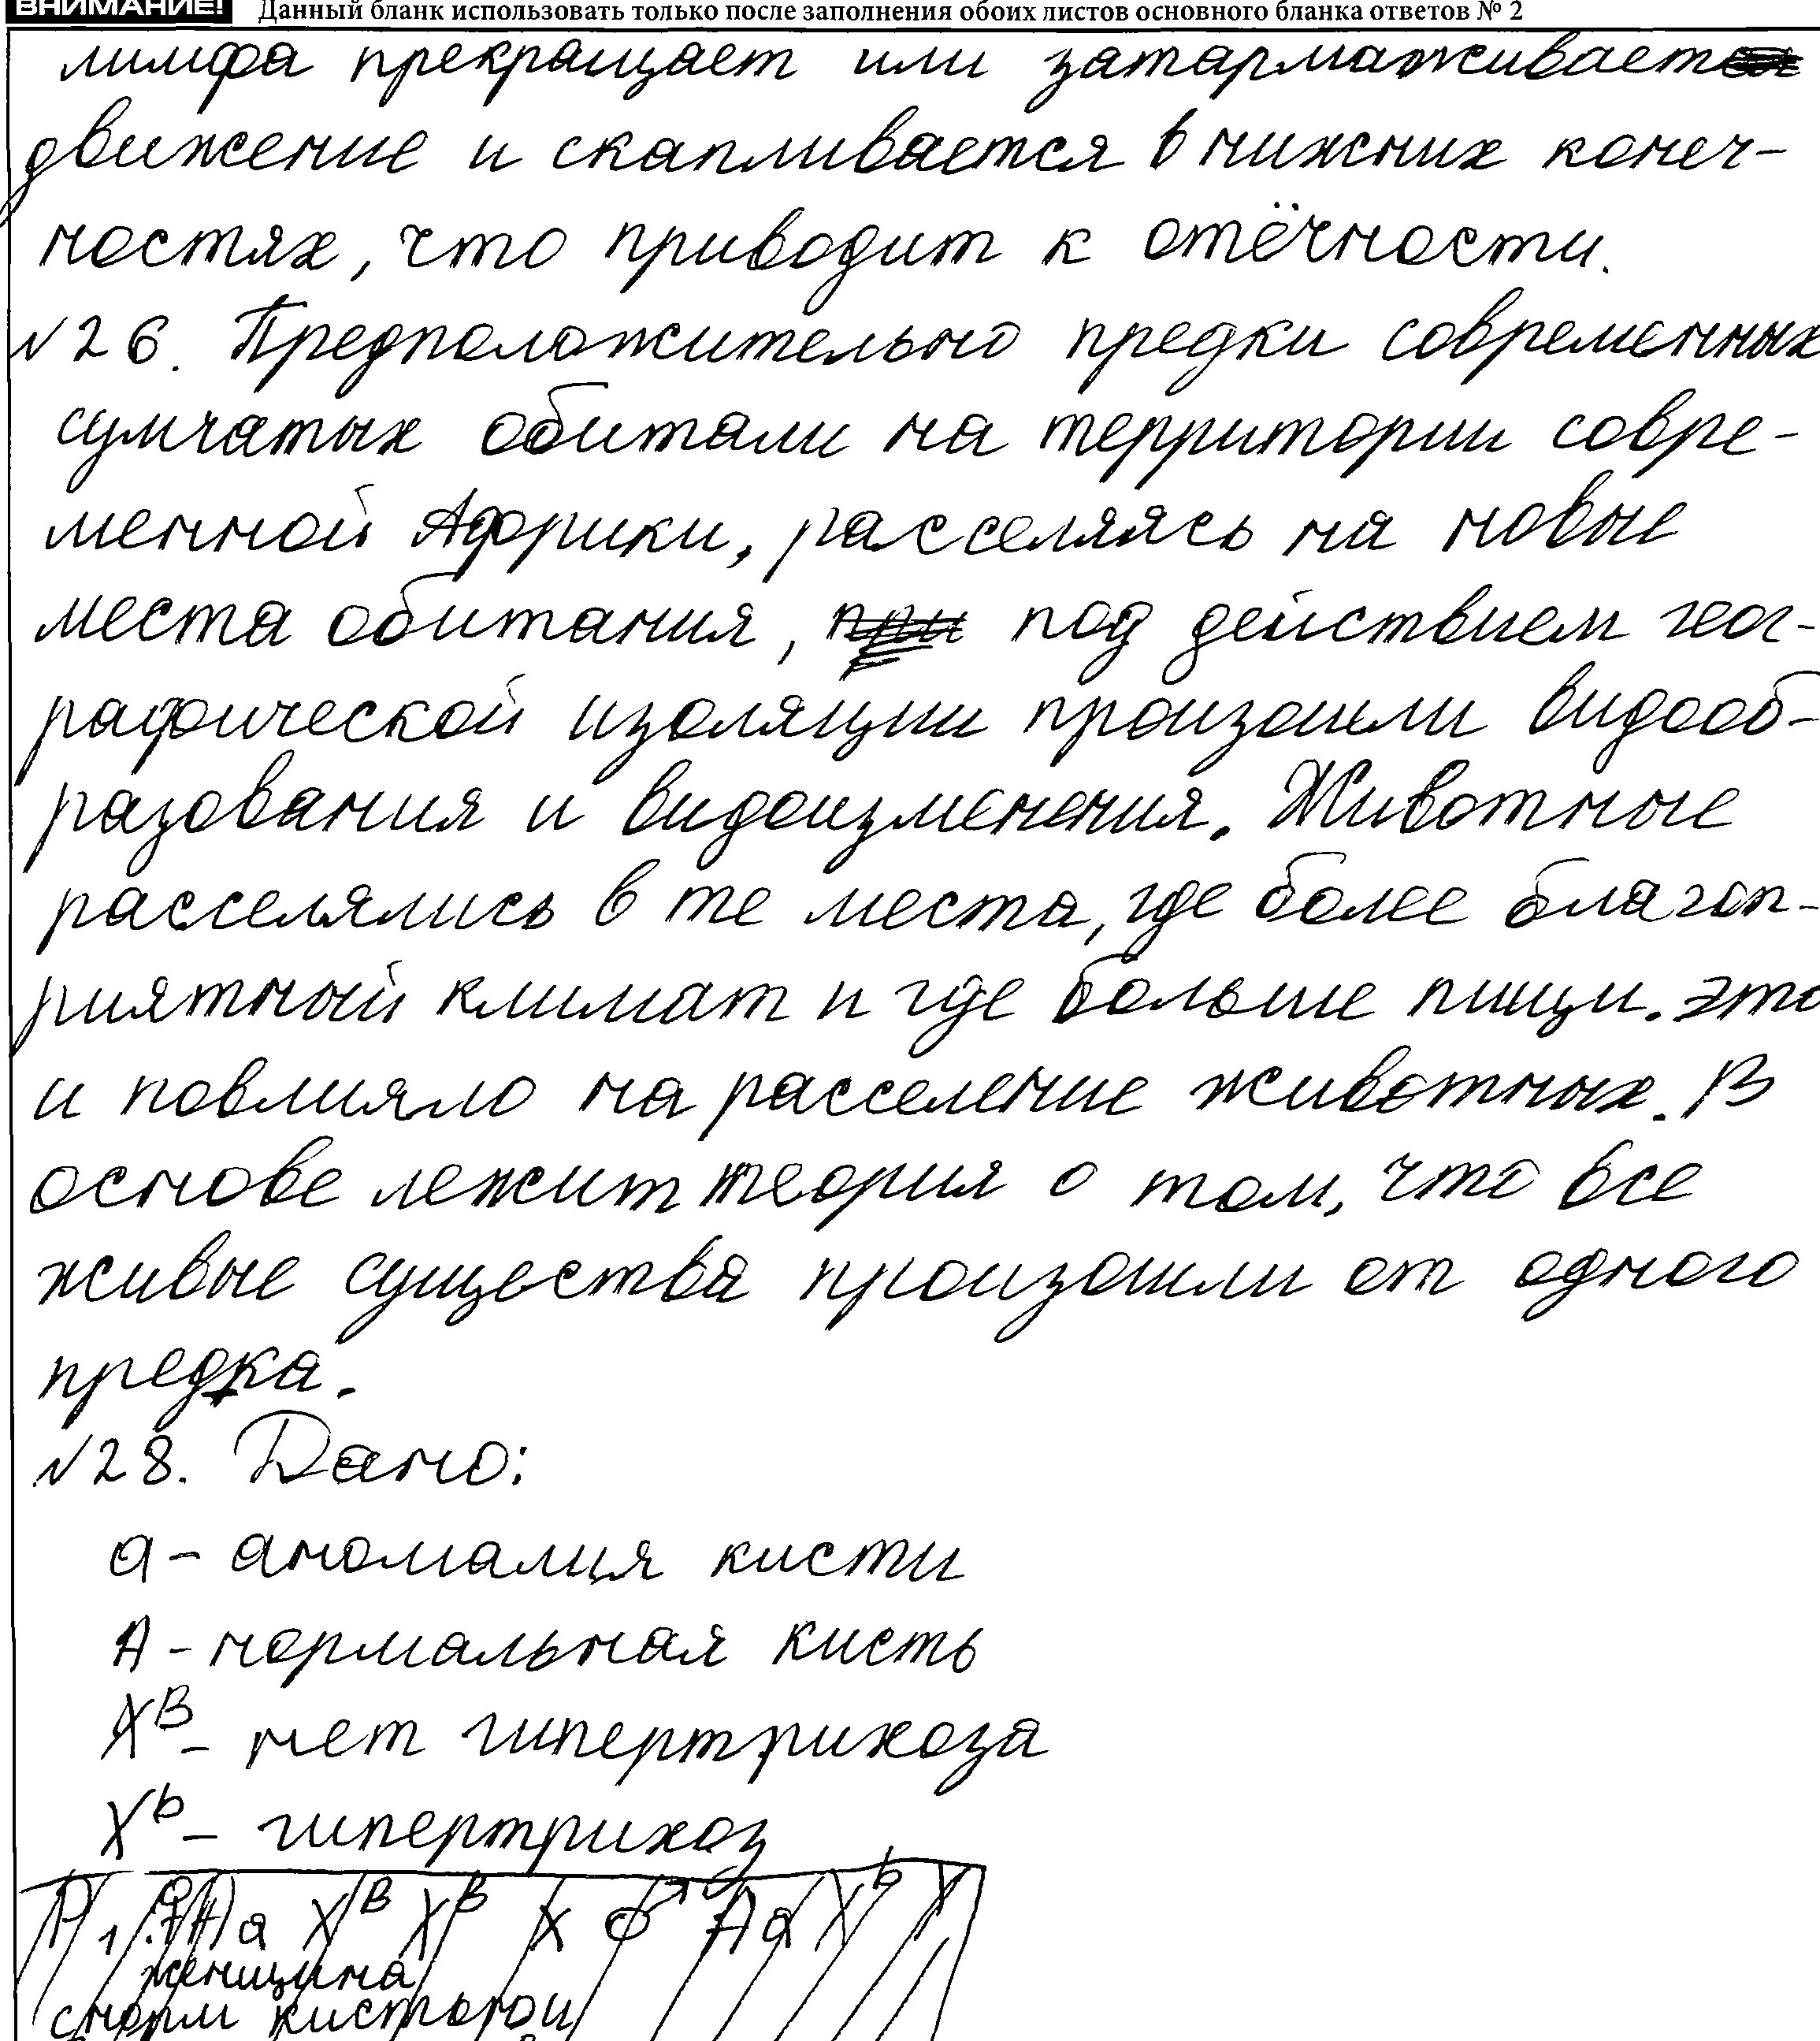 ВНИМАНИЕ! Данный бланк использовать только после заполнения обоих листов основного бланка ответов № 2
лимфа прекращает или затармаживает
движение и скапливается в нижних конеч-
ностях, что приводит к отёчности.
№26. Предположительно предки современных
сумчатых обитали на территории совре-
менной Африки, расселяясь на новые
места обитания, при под действием геог-
рафической изоляции произошли видооб-
разования и видоизменения. Животные
расселялись в те места, где более благоп-
риятный климат и где больше пищи. это
и повлияло на расселение животных. В
основе лежит теория о том, что все
живые существа произошли от одного
предка.
№28. Дано:
а - аномалия кисти
А - нормальная кисть
X^B - нет гипертрихоза
X^b - гипертрихоз
P1: ♀ Аа X^B X^B x ♂ Аа X^b Y
женщина
с норм кистью